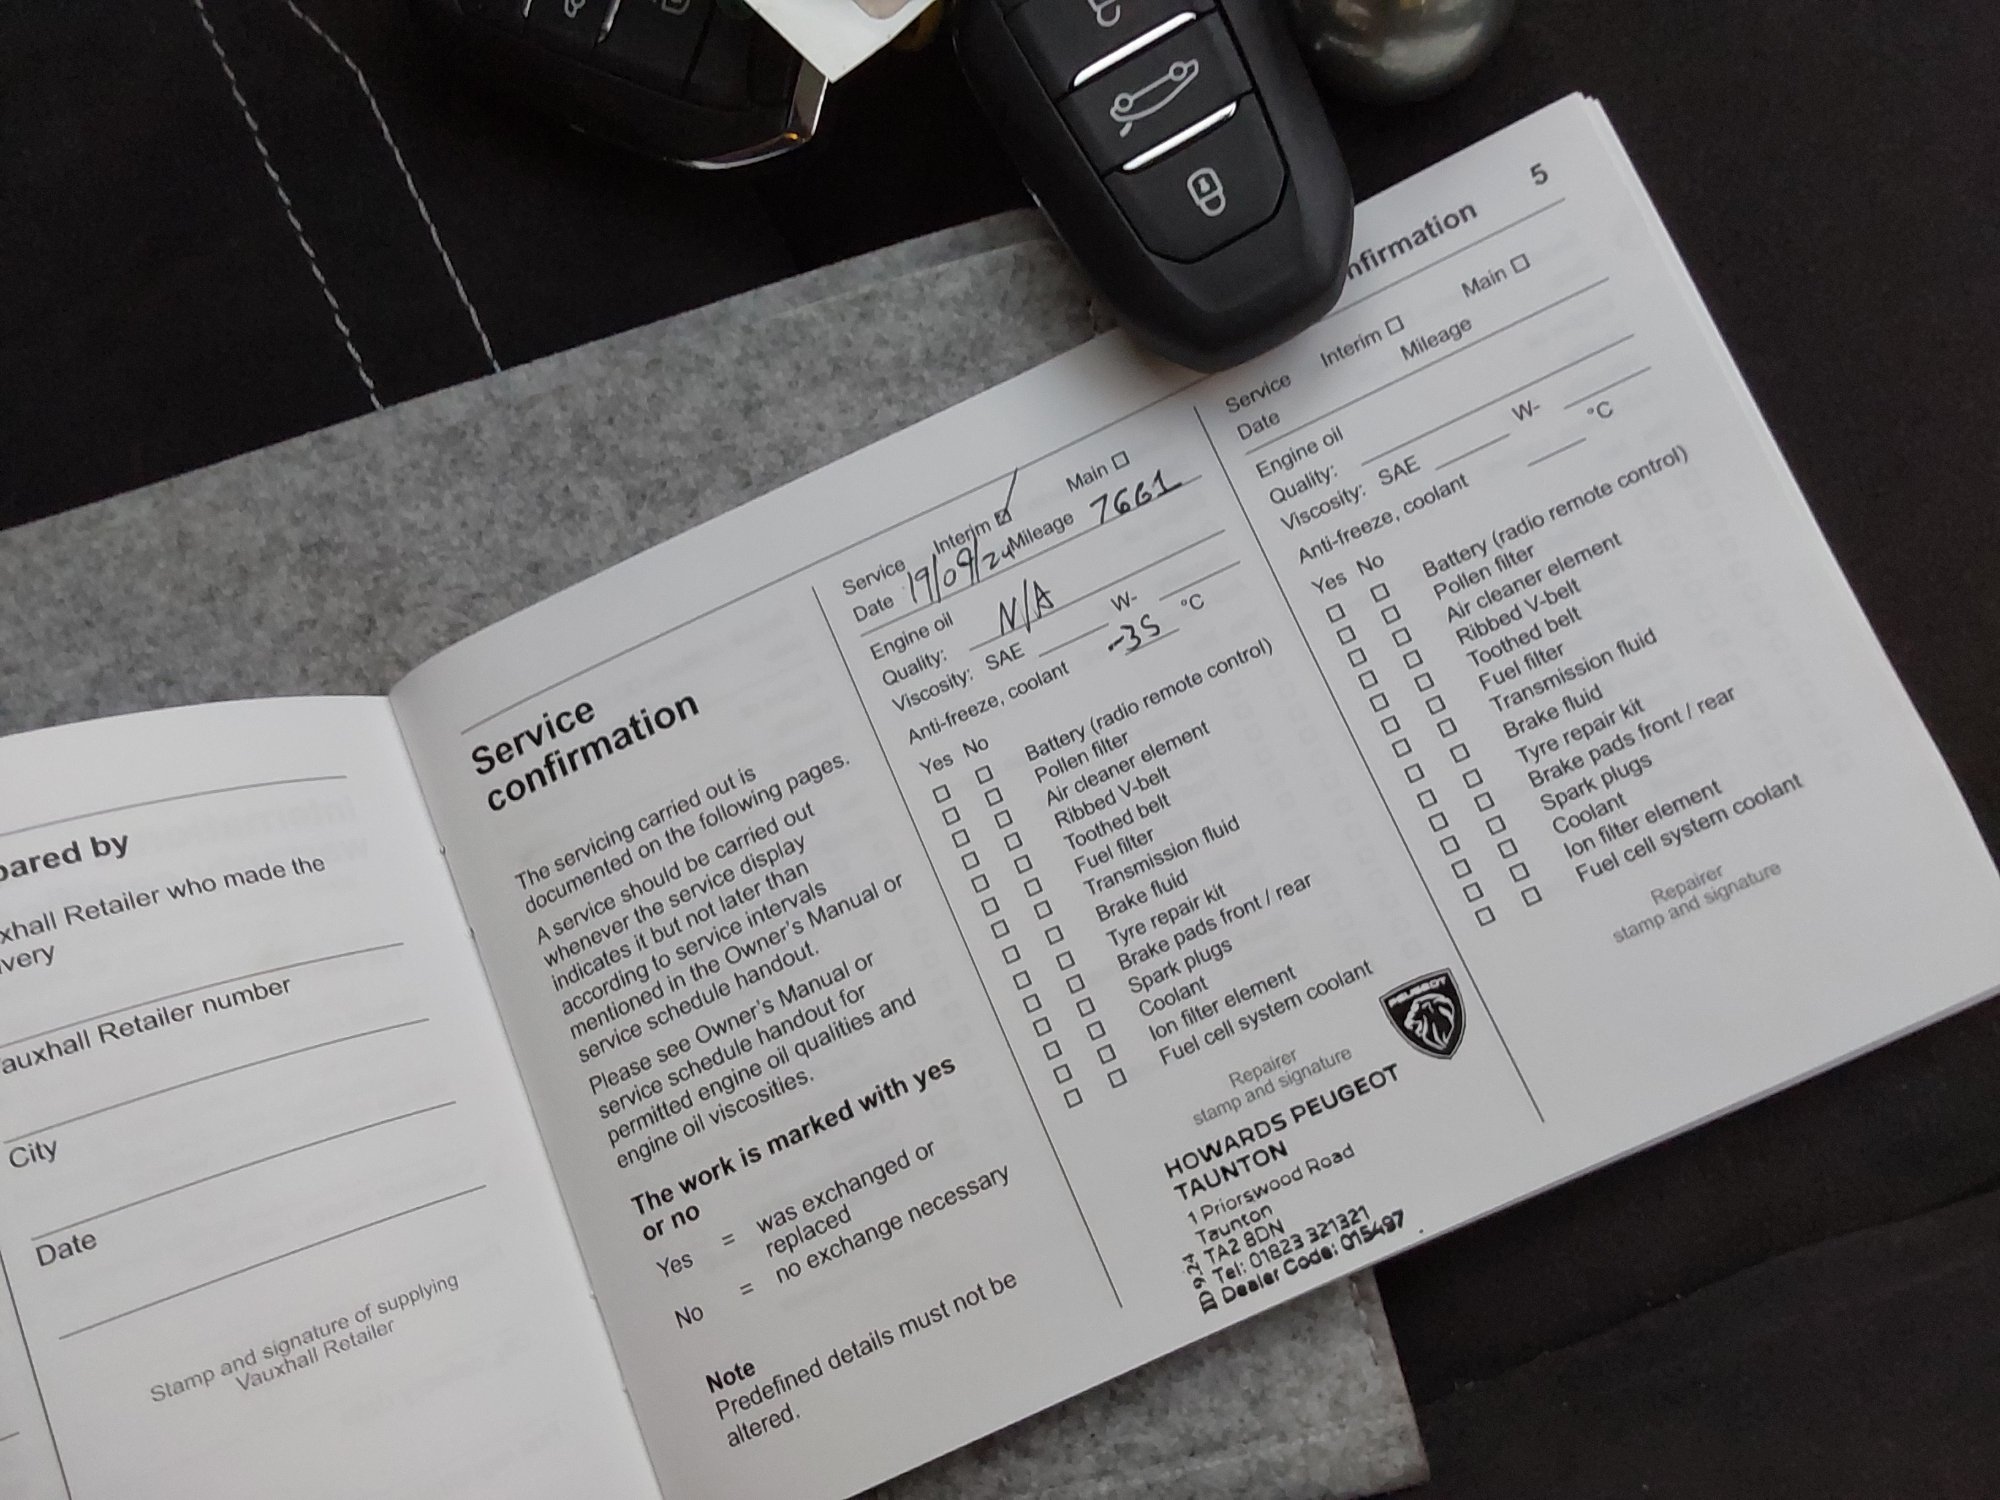 pared by
xhall Retailer who made the
ivery
auxhall Retailer number
City
Date
Stamp and signature of supplying
Vauxhall Retailer
Service
confirmation
The servicing carried out is
documented on the following pages.
A service should be carried out
whenever the service display
indicates it but not later than
according to service intervals
mentioned in the Owner's Manual or
service schedule handout.
Please see Owner's Manual or
service schedule handout for
permitted engine oil qualities and
engine oil viscosities.
The work is marked with yes
or no
Yes = was exchanged or
replaced
No = no exchange necessary
Note
Predefined details must not be
altered.
Service Interim Main
Date 19/09/24 Mileage 7661
Engine oil
Quality: N/A
Viscosity: SAE W-
Anti-freeze, coolant -35 °C
Yes No
Battery (radio remote control)
Pollen filter
Air cleaner element
Ribbed V-belt
Toothed belt
Fuel filter
Transmission fluid
Brake fluid
Tyre repair kit
Brake pads front / rear
Spark plugs
Coolant
Ion filter element
Fuel cell system coolant
Repairer
stamp and signature
PEUGEOT
HOWARDS PEUGEOT
TAUNTON
1 Priorswood Road
Taunton
TA2 8DN
Tel: 01823 321321
Dealer Code: 015497
ID 9.24
nfirmation
5
Service Interim Main
Date Mileage
Engine oil
Quality:
Viscosity: SAE W-
Anti-freeze, coolant °C
Yes No
Battery (radio remote control)
Pollen filter
Air cleaner element
Ribbed V-belt
Toothed belt
Fuel filter
Transmission fluid
Brake fluid
Tyre repair kit
Brake pads front / rear
Spark plugs
Coolant
Ion filter element
Fuel cell system coolant
Repairer
stamp and signature